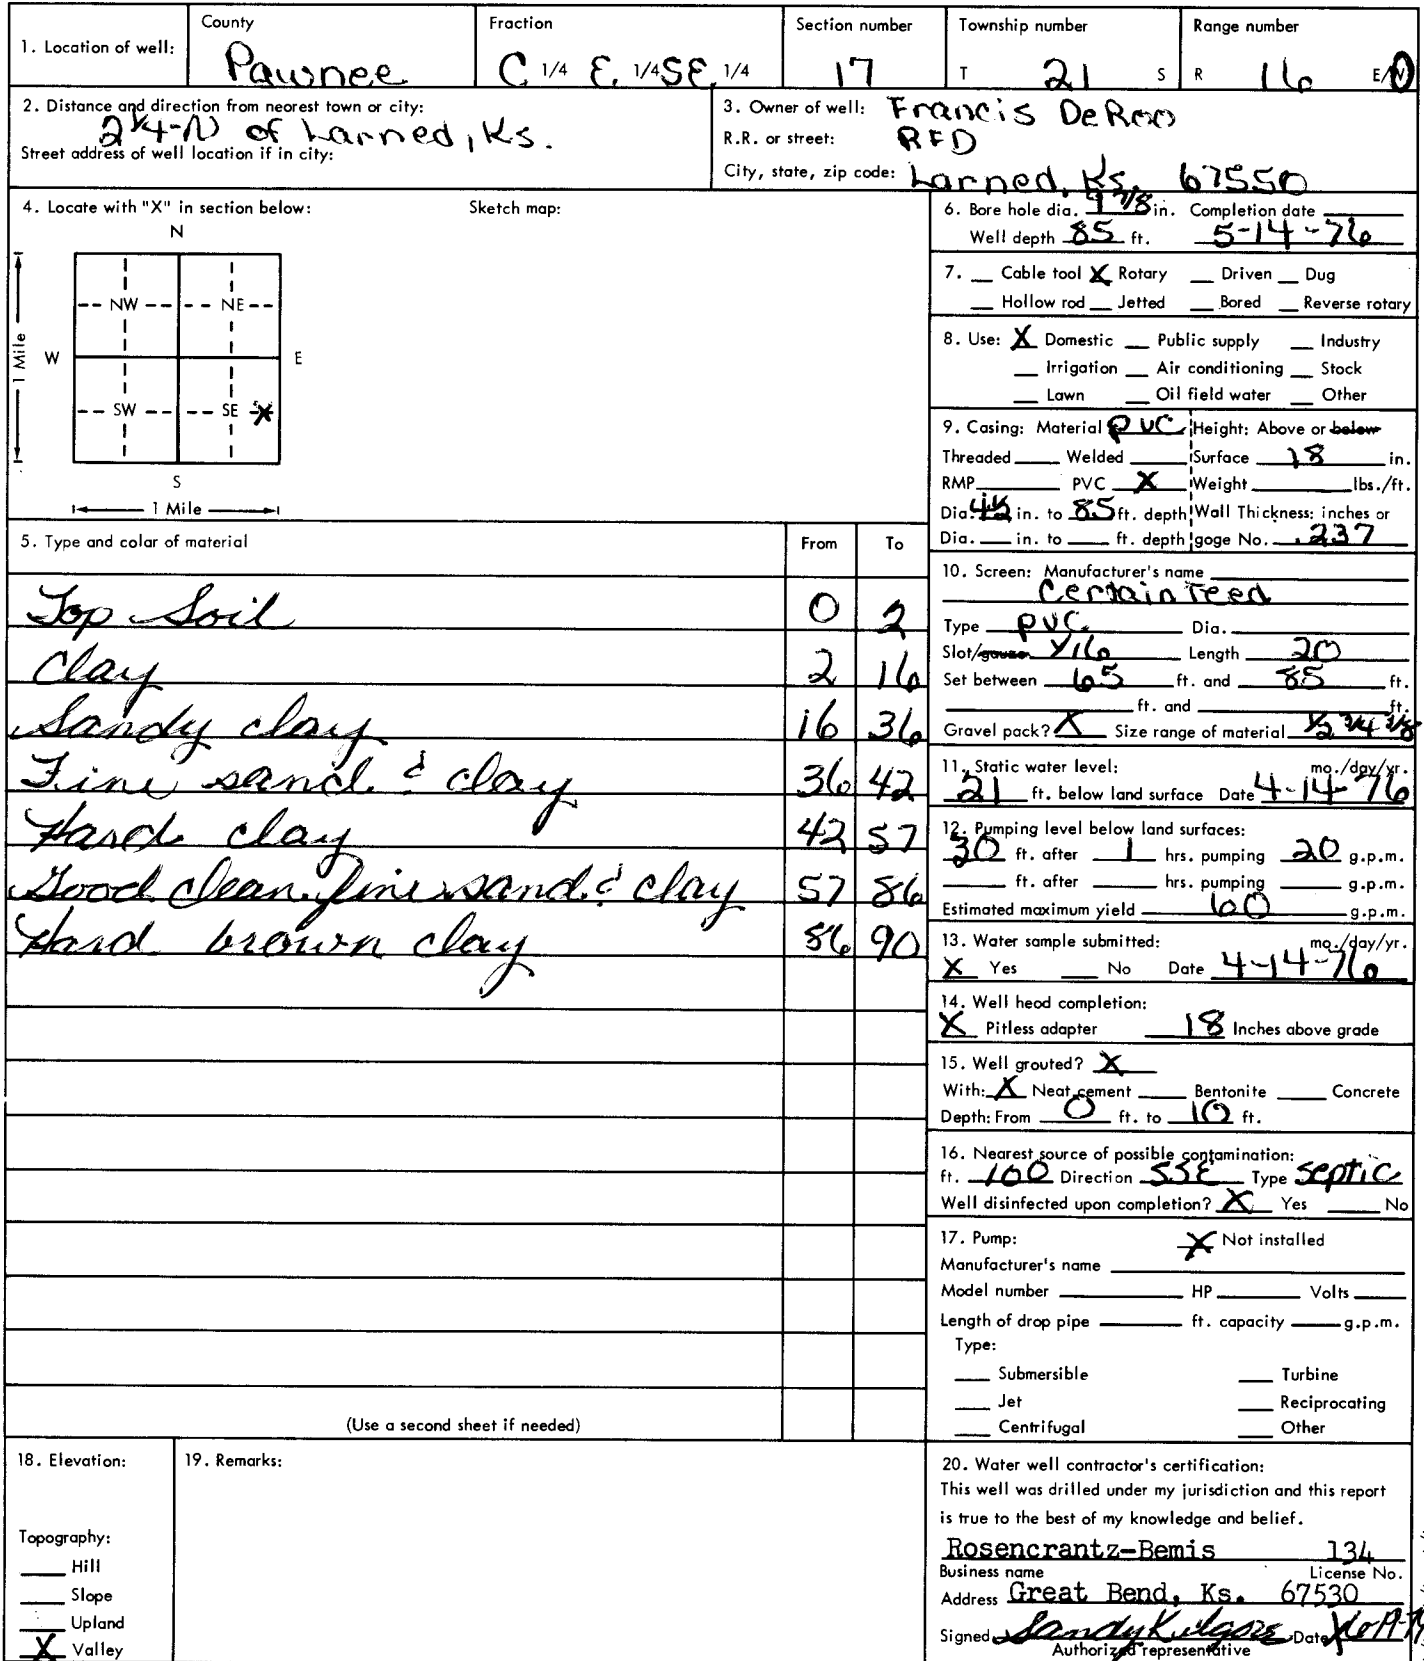 1. Location of well: County Pawnee Fraction C 1/4 E 1/4 SE 1/4 Section number 17 Township number T 21 S Range number R 16 E/W
2. Distance and direction from nearest town or city: 2 1/4-N of Larned, Ks.
Street address of well location if in city:
3. Owner of well: Francis DeRoo
R.R. or street: RFD
City, state, zip code: Larned, Ks. 67550
4. Locate with "X" in section below: Sketch map:
N
NW NE
W E
1 Mile
SW SE X
S
1 Mile
5. Type and color of material From To
Top Soil 0 2
Clay 2 16
Sandy clay 16 36
Fine sand & clay 36 42
Hard clay 42 57
Good clean fine sand & clay 57 86
Hard brown clay 86 90
(Use a second sheet if needed)
6. Bore hole dia. 9 7/8 in. Completion date
Well depth 85 ft. 5-14-76
7. __ Cable tool X Rotary __ Driven __ Dug
__ Hollow rod __ Jetted __ Bored __ Reverse rotary
8. Use: X Domestic __ Public supply __ Industry
__ Irrigation __ Air conditioning __ Stock
__ Lawn __ Oil field water __ Other
9. Casing: Material PVC Height: Above or below
Threaded __ Welded __ Surface 18 in.
RMP __ PVC X Weight __ lbs./ft.
Dia. 4 1/2 in. to 85 ft. depth Wall Thickness: inches or
Dia. __ in. to __ ft. depth gage No. .237
10. Screen: Manufacturer's name
CertainTeed
Type PVC Dia.
Slot/gauze 1/16 Length 20
Set between 65 ft. and 85 ft.
__ ft. and __ ft.
Gravel pack? X Size range of material 1/2 3/4 3/8
11. Static water level: mo./day/yr.
21 ft. below land surface Date 4-14-76
12. Pumping level below land surfaces:
30 ft. after 1 hrs. pumping 20 g.p.m.
__ ft. after __ hrs. pumping __ g.p.m.
Estimated maximum yield 60 g.p.m.
13. Water sample submitted: mo./day/yr.
X Yes __ No Date 4-14-76
14. Well head completion:
X Pitless adapter 18 Inches above grade
15. Well grouted? X
With: X Neat cement __ Bentonite __ Concrete
Depth: From 0 ft. to 10 ft.
16. Nearest source of possible contamination:
ft. 100 Direction SSE Type Septic
Well disinfected upon completion? X Yes __ No
17. Pump: X Not installed
Manufacturer's name
Model number __ HP __ Volts __
Length of drop pipe __ ft. capacity __ g.p.m.
Type:
__ Submersible __ Turbine
__ Jet __ Reciprocating
__ Centrifugal __ Other
18. Elevation:
Topography:
__ Hill
__ Slope
__ Upland
X Valley
19. Remarks:
20. Water well contractor's certification:
This well was drilled under my jurisdiction and this report
is true to the best of my knowledge and belief.
Rosencrantz-Bemis 134
Business name License No.
Address Great Bend, Ks. 67530
Signed Sandy Kilgore Date
Authorized representative